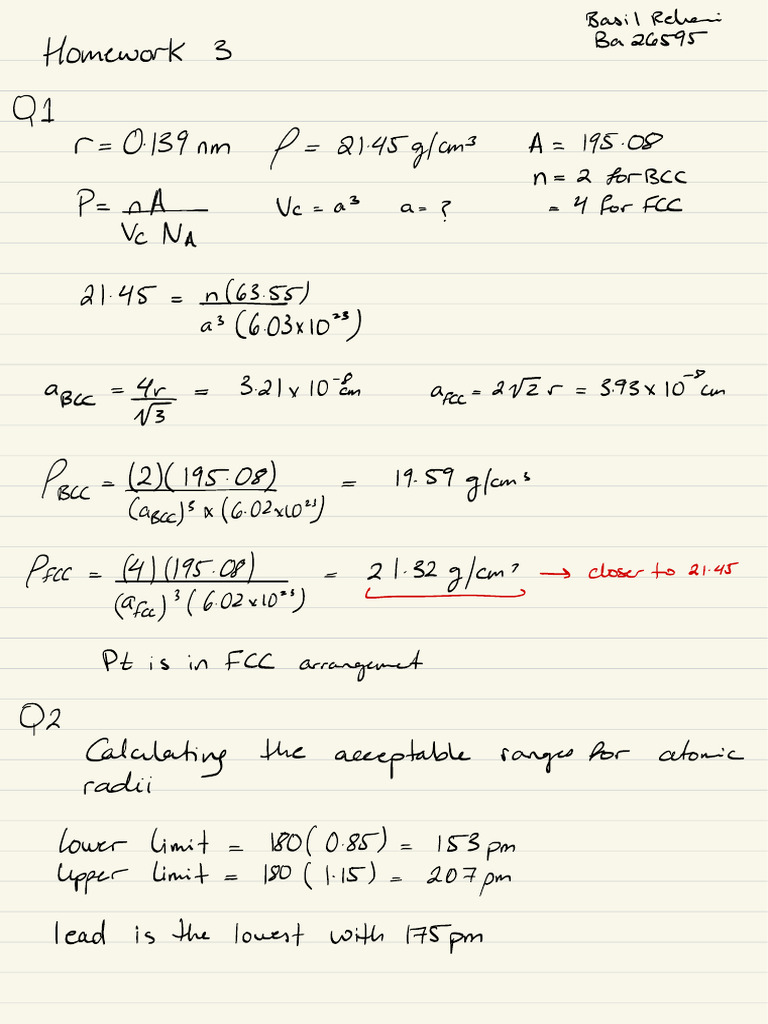 Basil Reheni
Ba26595
Homework 3
Q1
r = 0.139 nm ρ = 21.45 g/cm³ A = 195.08
n = 2 for BCC
= 4 for FCC
ρ = nA / Vc NA Vc = a³ a = ?
21.45 = n(63.55) / a³(6.03×10²³)
aBCC = 4r / √3 = 3.21 × 10⁻⁸ cm aFCC = 2√2 r = 3.93 × 10⁻⁸ cm
ρBCC = (2)(195.08) / (aBCC)³ × (6.02×10²³) = 19.59 g/cm³
ρFCC = (4)(195.08) / (aFCC)³ (6.02×10²³) = 21.32 g/cm³ → closer to 21.45
Pt is in FCC arrangement
Q2
Calculating the acceptable ranges for atomic
radii
lower limit = 180(0.85) = 153 pm
Upper limit = 180(1.15) = 207 pm
lead is the lowest with 175 pm